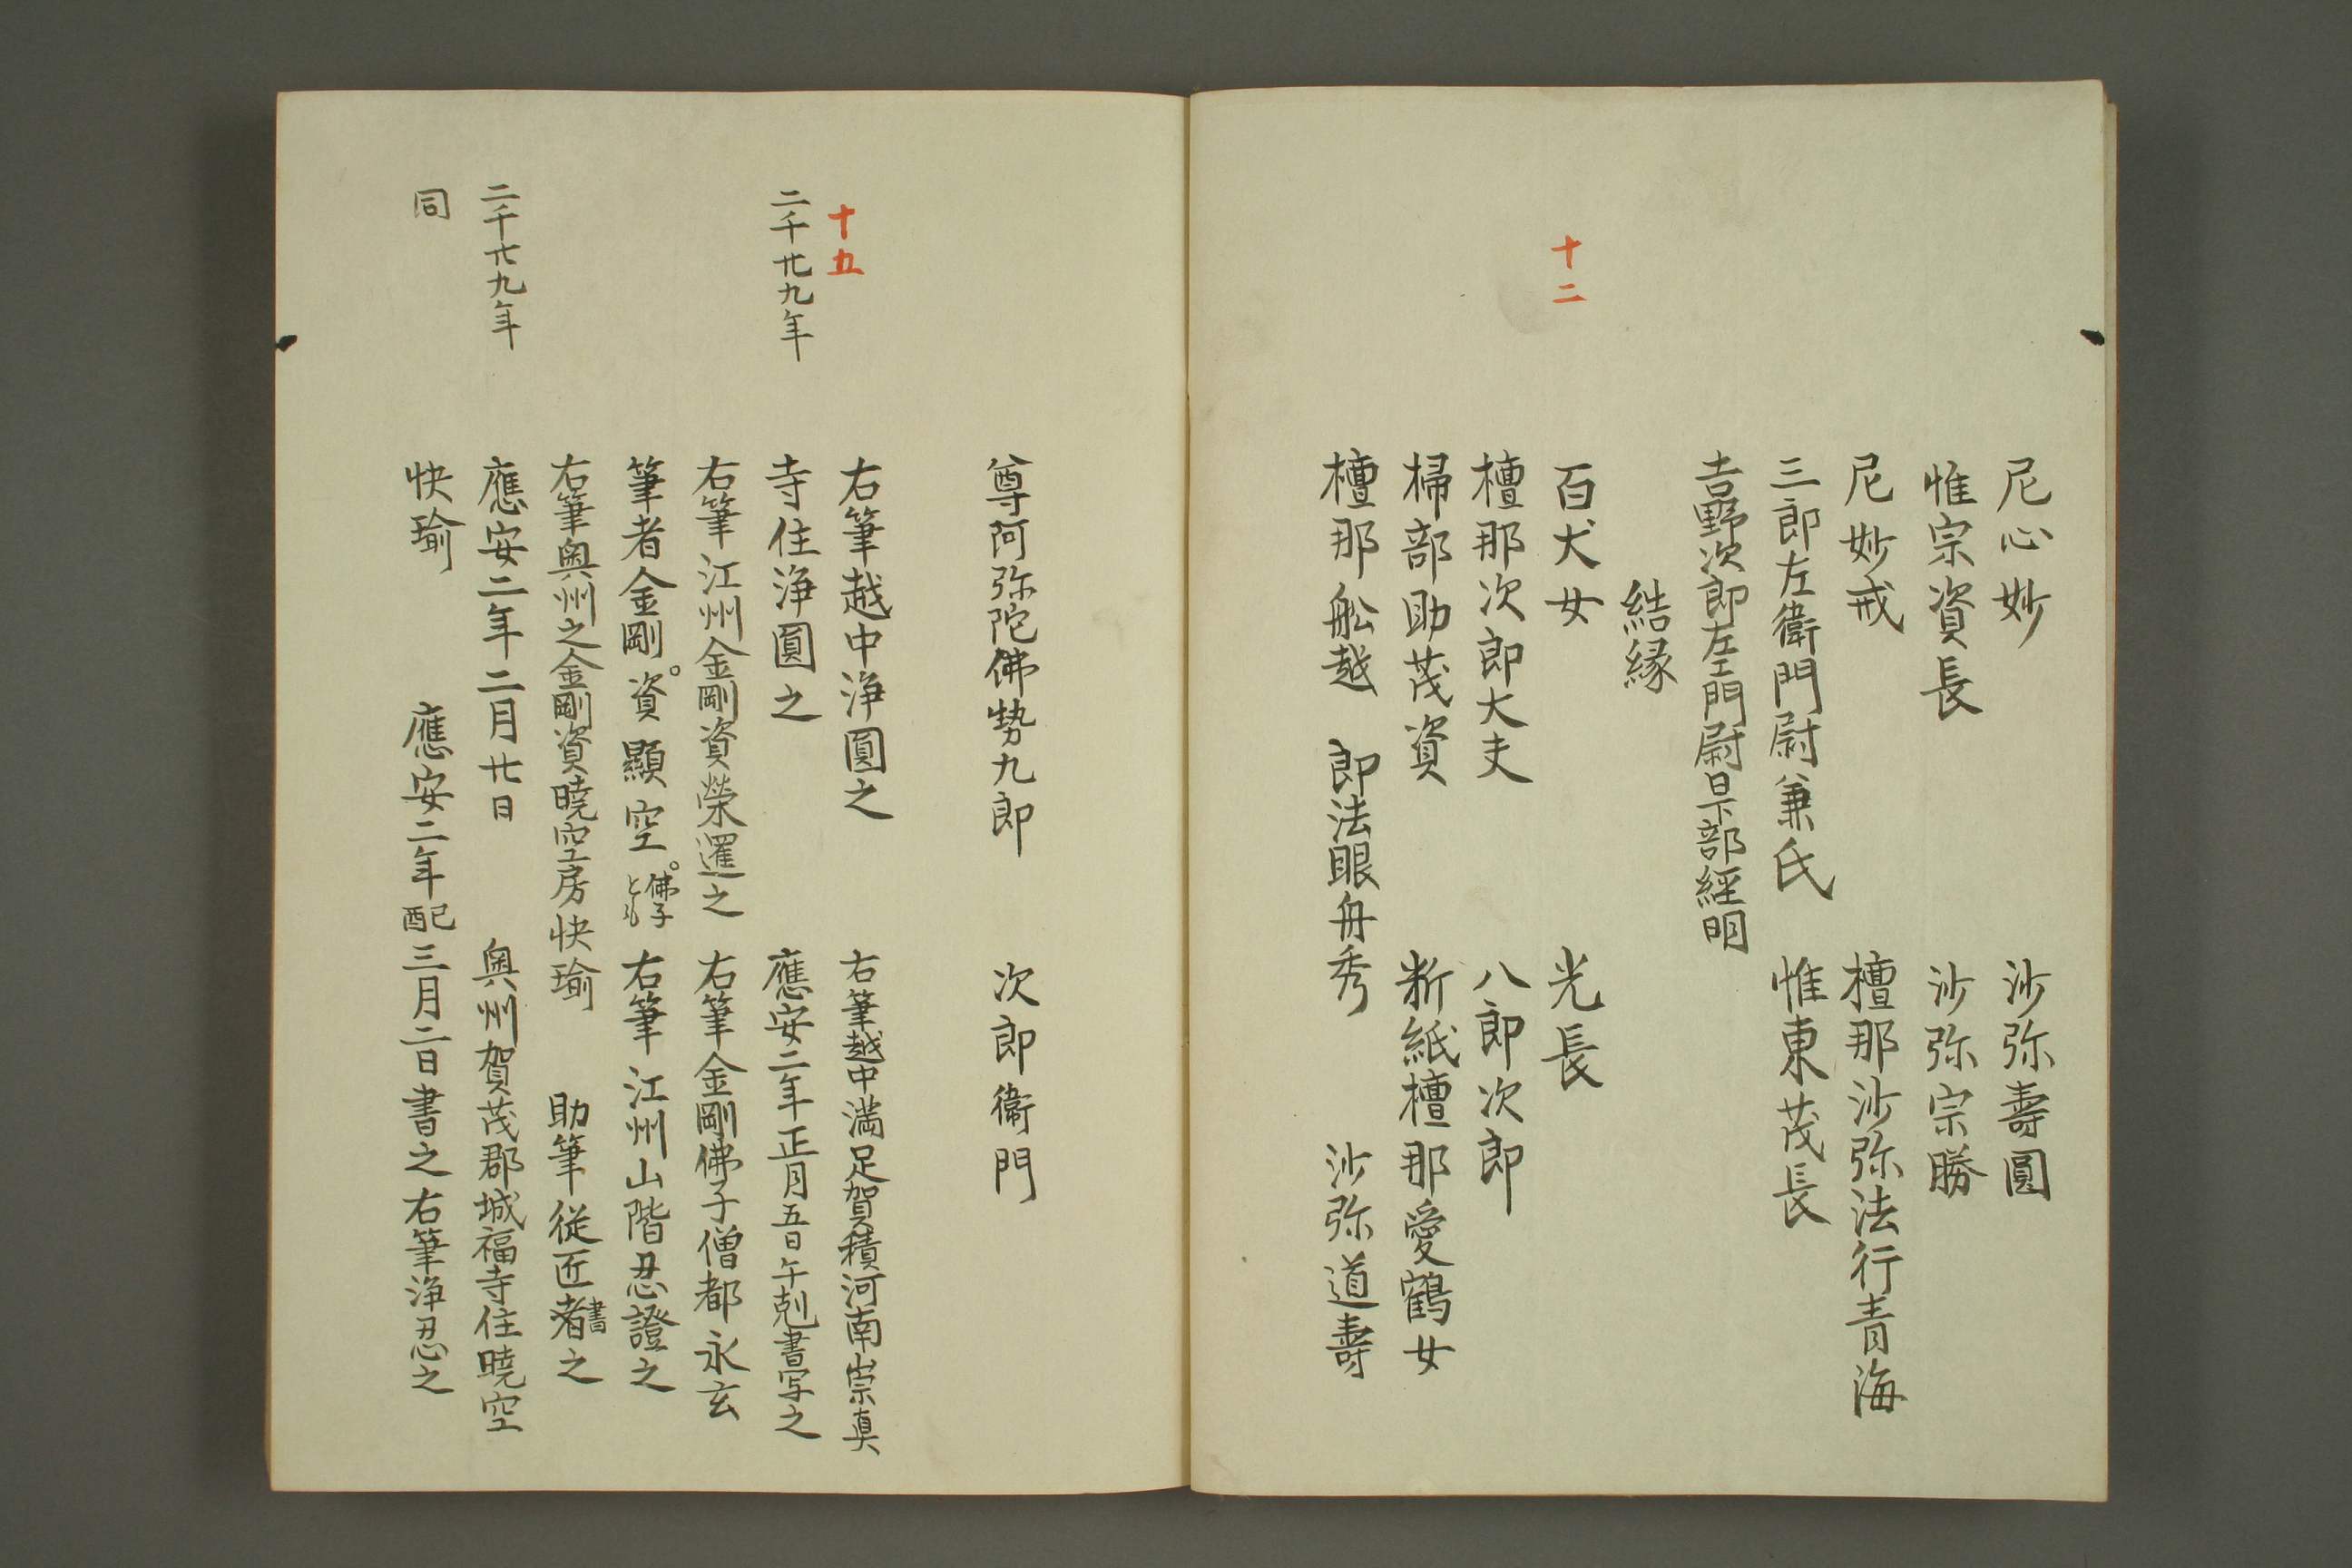 尼心妙　沙弥壽圓
惟宗資長　沙弥宗勝
尼妙戒　檀那沙弥法行青海
三郎左衛門尉兼氏　惟東茂長
吉野次郎左エ門尉日下部經明
結縁
十二
百犬女　光長
檀那次郎大夫　八郎次郎
掃部助茂資　斷紙檀那愛鶴女
檀那舩越　即法眼舟秀　沙弥道壽
尊阿弥陀佛勢九郎　次郎衛門
十五
右筆越中浄圓之　右筆越中満足賀積河南崇真
二千廿九年　寺住浄圓之　應安二年正月五日午剋書写之
右筆江州金剛資榮暹之　右筆金剛佛子僧都永玄
筆者金剛。資顯空。佛子とも　右筆江州山階忍證之
右筆奥州之金剛資暁空房快瑜　助筆従匠者書之
二千廿九年　應安二年二月廿日　奥州賀茂郡城福寺住暁空
同　快瑜　應安二年己酉三月二日書之右筆浄忍之